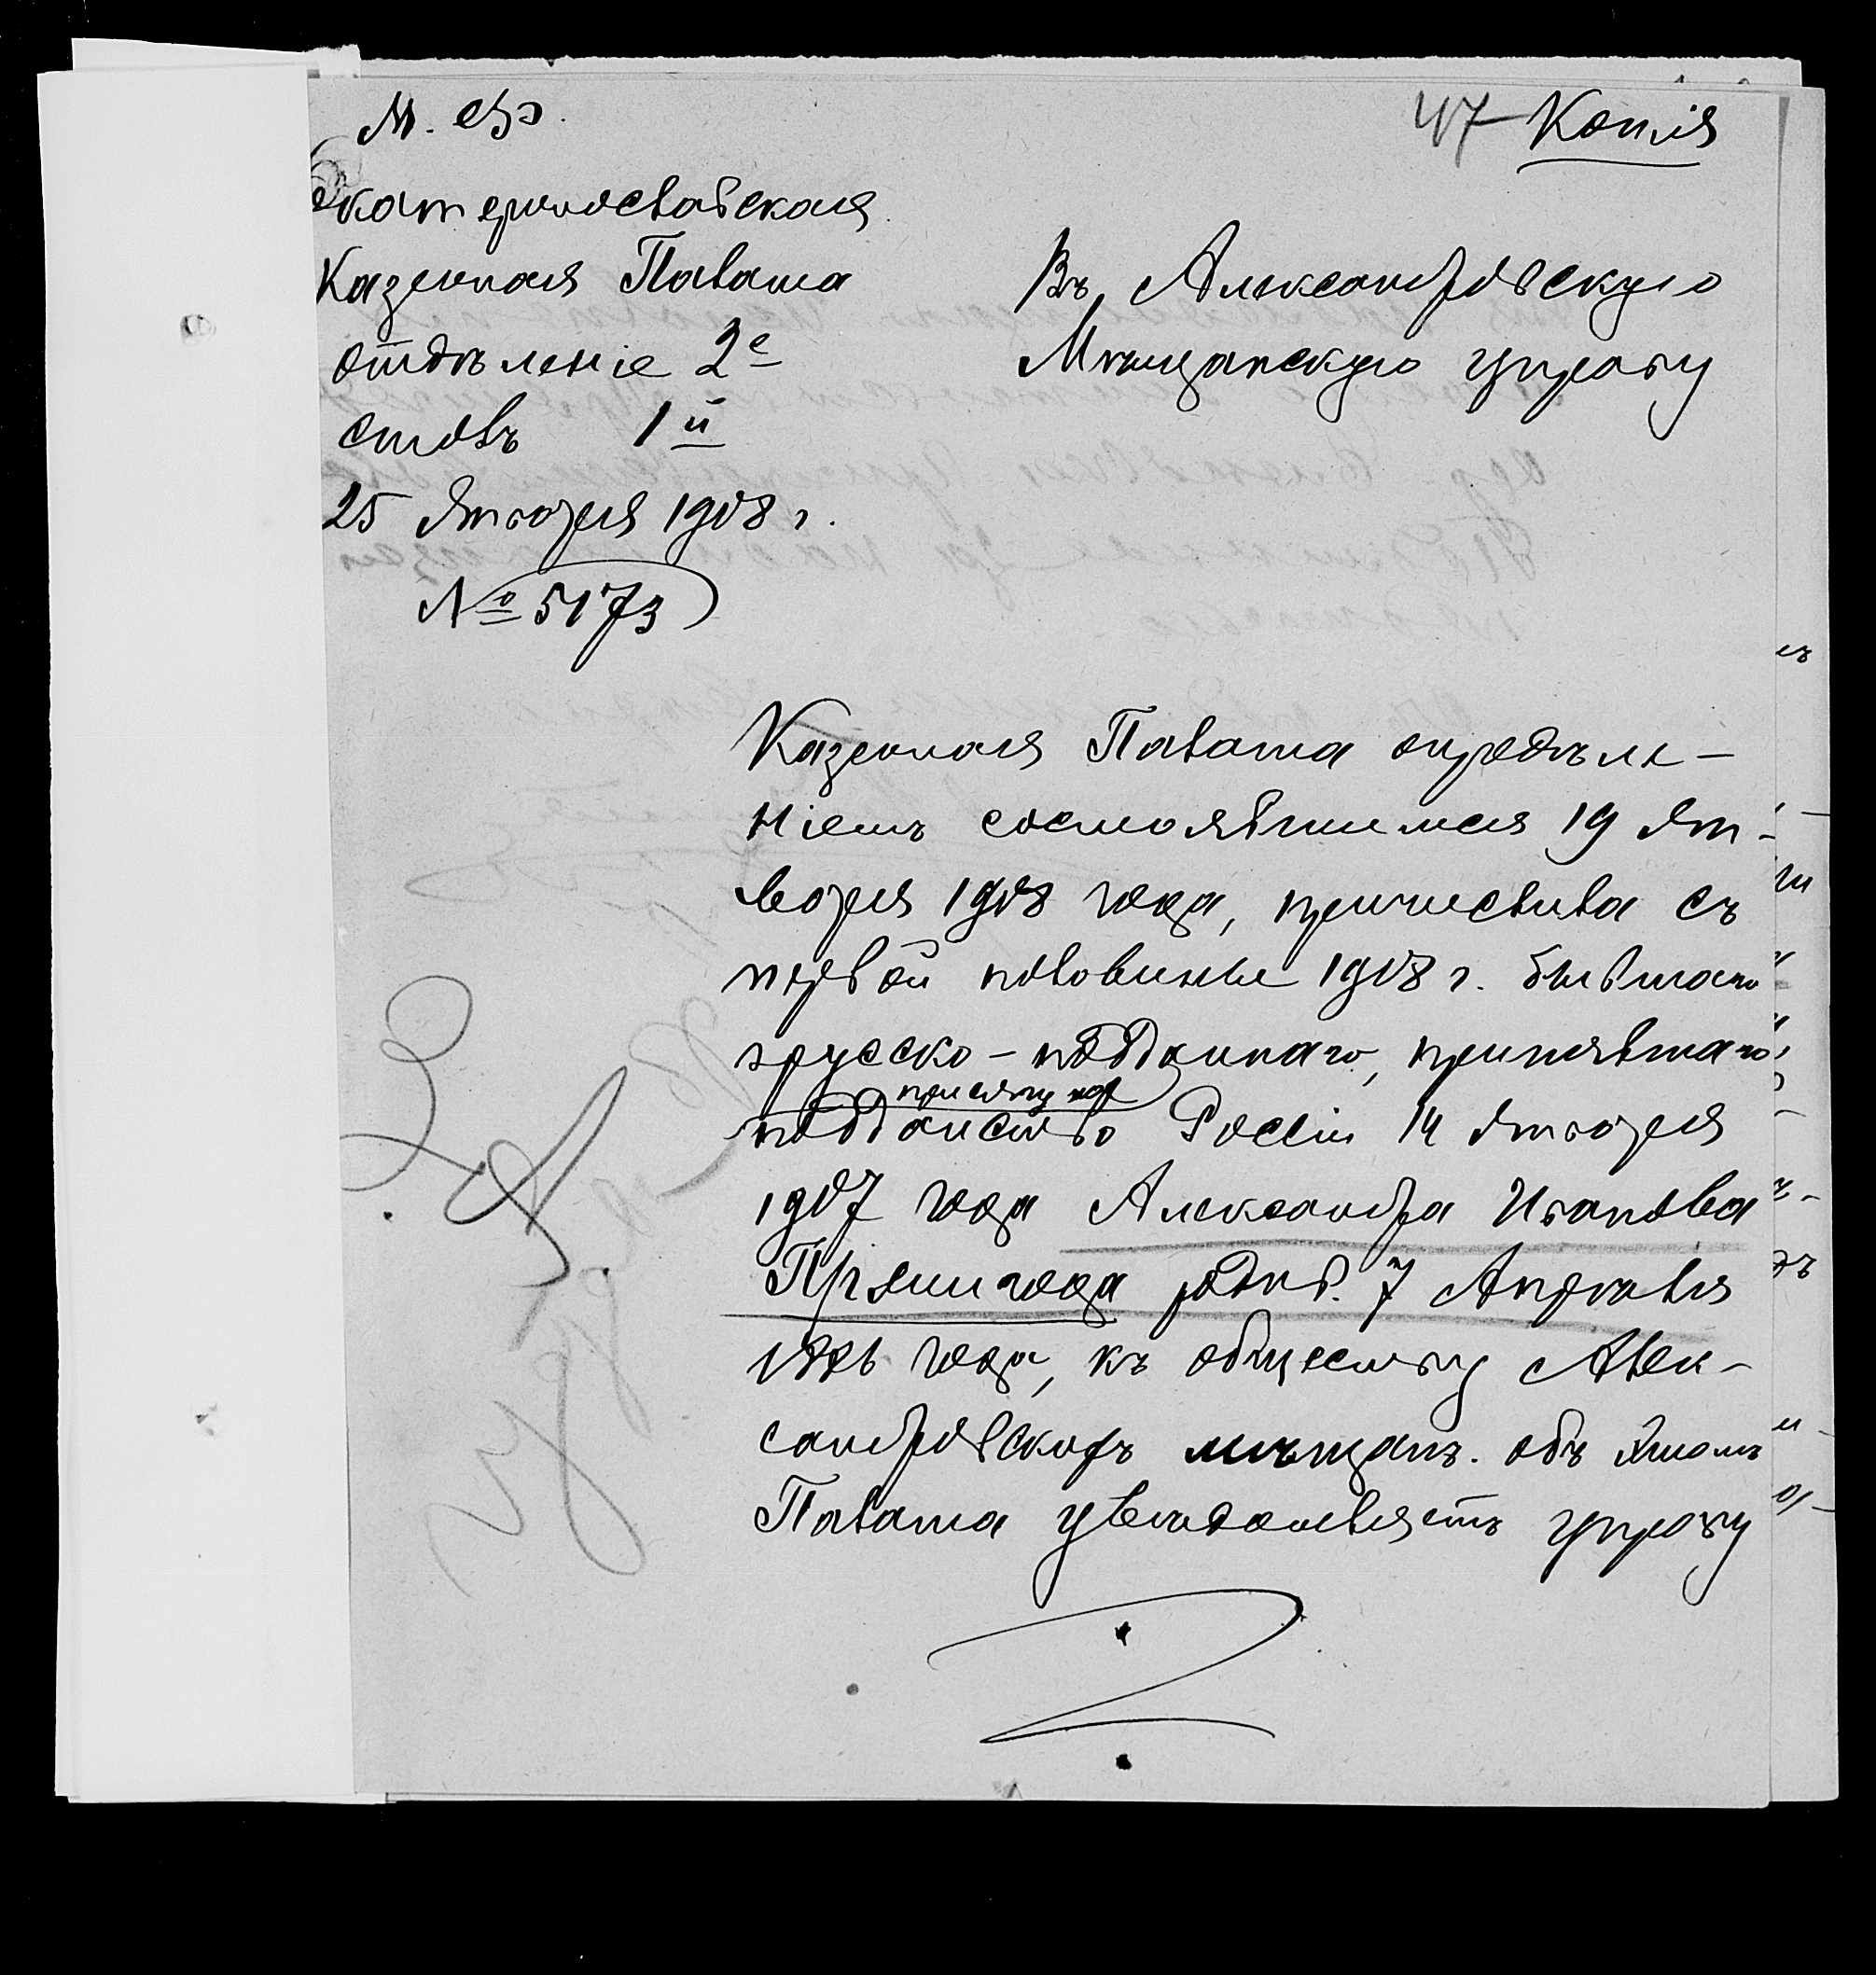 М. Ф.
47 Копія
Екатеринославская
Казенная Палата
отдѣленіе 2е
столъ 1й
25 Января 1908 г.
№ 5173
Въ Александровскую
Мѣщанскую управу
Казенная Палата опредѣле-
ніемъ состоявшимся 19 Ян-
варя 1908 года, причислила съ
первой половины 1908 г. бывшаго
прусско-подданнаго, принявшаго
присягу на
подданство Россіи 14 Января
1907 года Александра Иванова
родив. 7 Апрѣля
года, къ обществу Алек-
сандровскихъ мѣщанъ. Объ этомъ
Палата увѣдомляетъ управу